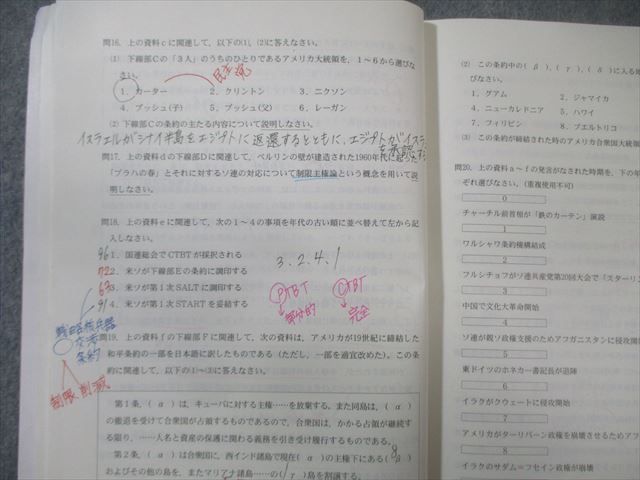 問16. 上の資料cに関連して，以下の(1)，(2)に答えなさい。
(1) 下線部Cの「3人」のうちのひとりであるアメリカ大統領を，1～6から選びな
さい。
民主党
1．カーター 2．クリントン 3．ニクソン
4．ブッシュ(子) 5．ブッシュ(父) 6．レーガン
(2) 下線部Cの条約の主たる内容について説明しなさい。
イスラエルがシナイ半島をエジプトに返還するとともに、エジプトがイスラ
を承認する
問17. 上の資料dの下線部Dに関連して，ベルリンの壁が建造された1960年代に起きた
「プラハの春」とそれに対するソ連の対応について制限主権論という概念を用いて説
明しなさい。
問18. 上の資料eに関連して，次の1～4の事項を年代の古い順に並べ替えて左から記
入しなさい。
96 1．国連総会でCTBTが採択される
3. 2. 4. 1
72 2．米ソが下線部Eの条約に調印する
63 3．米ソが第1次SALTに調印する
91 4．米ソが第1次STARTを妥結する
PTBT CTBT
部分的 完全
戦略核兵器
交渉
条約
制限 削減
問19. 上の資料fの下線部Fに関連して，次の資料は，アメリカが19世紀に締結した
和平条約の一部を日本語に訳したものである（ただし，一部を適宜改めた）。この条
約に関連して，以下の(1)～(3)に答えなさい。
第1条．（ α ）は，キューバに対する主権……を放棄する。また同島は，（ α ）
の撤退を受けて合衆国が占領するものであるので，合衆国は，かかる占領が継続す
る限り，……人名と資産の保護に関わる義務を引き受け履行するものである。
第2条．（ α ）は合衆国に，西インド諸島で現在（ α ）の主権下にある（ β ）
およびその他の島を，またマリアナ諸島の（ γ ）島を割譲する。
(2) この条約中の（ β ），（ γ ），（ δ ）に入る地
びなさい。
1．グアム 2．ジャマイカ
4．ニューカレドニア 5．ハワイ
7．フィリピン 8．プエルトリコ
(3) この条約が締結された時のアメリカ合衆国大統領
問20. 上の資料a～fの発言がなされた時期を，下の年
ぞれ選びなさい。（重複使用不可）
0
チャーチル前首相が「鉄のカーテン」演説
1
ワルシャワ条約機構結成
2
フルシチョフがソ連共産党第20回大会で「スターリン
3
中国で文化大革命開始
4
ソ連が親ソ政権支援のためアフガニスタンに侵攻開
5
東ドイツのホネカー書記長が退陣
6
イラクがクウェートに侵攻開始
7
アメリカがターリバーン政権を崩壊させるためアフ
8
イラクのサダム＝フセイン政権が崩壊